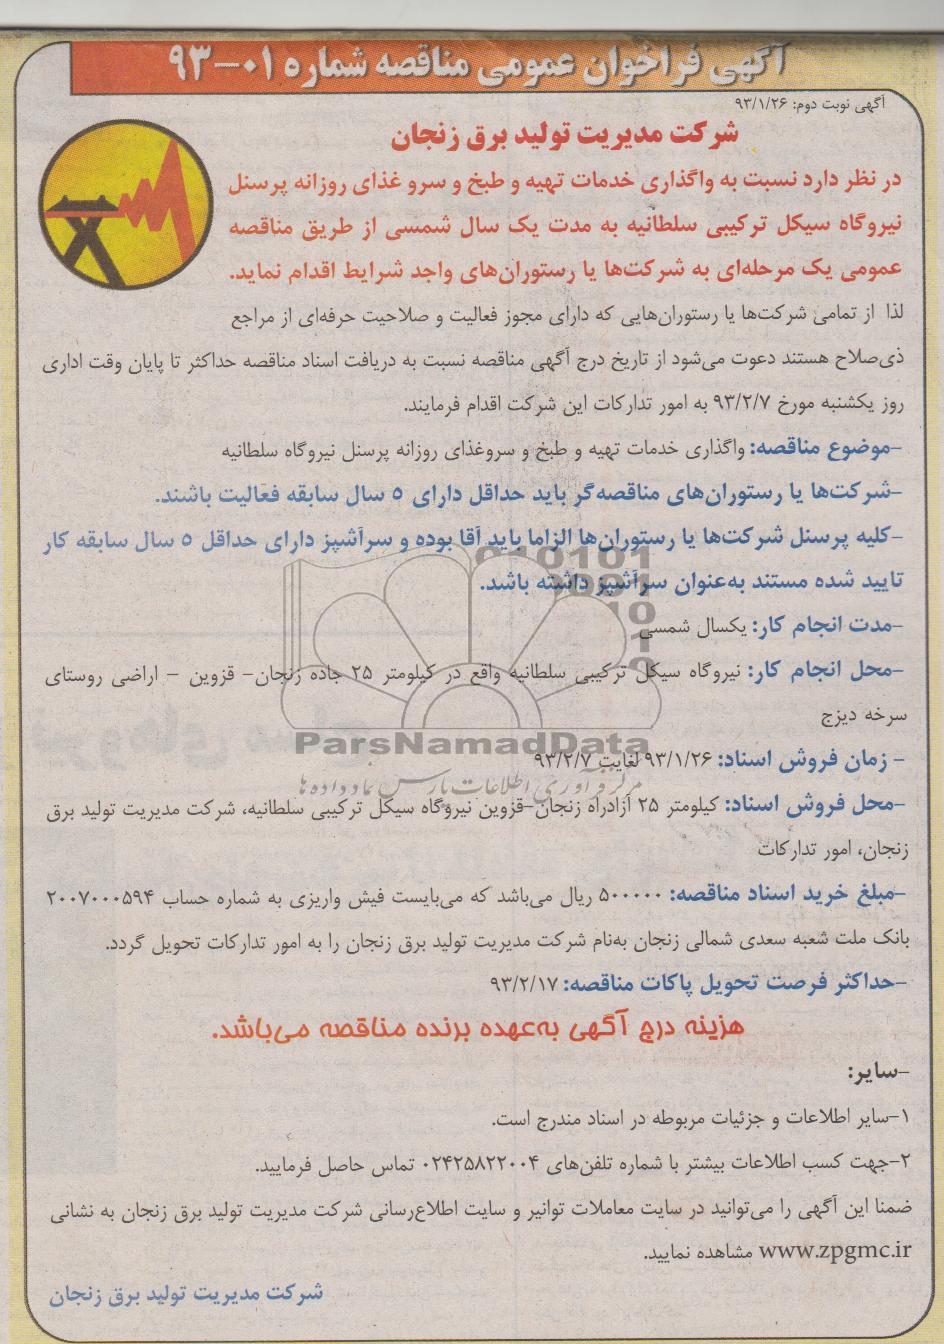 آگهی فراخوان عمومی مناقصه شماره ۰۱-۹۳
آگهی نوبت دوم: ۹۳/۱/۲۶
شرکت مدیریت تولید برق زنجان
در نظر دارد نسبت به واگذاری خدمات تهیه و طبخ و سرو غذای روزانه پرسنل
نیروگاه سیکل ترکیبی سلطانیه به مدت یک سال شمسی از طریق مناقصه
عمومی یک مرحله‌ای به شرکت‌ها یا رستوران‌های واجد شرایط اقدام نماید.
لذا از تمامی شرکت‌ها یا رستوران‌هایی که دارای مجوز فعالیت و صلاحیت حرفه‌ای از مراجع
ذی‌صلاح هستند دعوت می‌شود از تاریخ درج آگهی مناقصه نسبت به دریافت اسناد مناقصه حداکثر تا پایان وقت اداری
روز یکشنبه مورخ ۹۳/۲/۷ به امور تدارکات این شرکت اقدام فرمایند.
-موضوع مناقصه: واگذاری خدمات تهیه و طبخ و سروغذای روزانه پرسنل نیروگاه سلطانیه
-شرکت‌ها یا رستوران‌های مناقصه‌گر باید حداقل دارای ۵ سال سابقه فعالیت باشند.
-کلیه پرسنل شرکت‌ها یا رستوران‌ها الزاما باید آقا بوده و سرآشپز دارای حداقل ۵ سال سابقه کار
تایید شده مستند به‌عنوان سرآشپز داشته باشد.
-مدت انجام کار: یکسال شمسی
-محل انجام کار: نیروگاه سیکل ترکیبی سلطانیه واقع در کیلومتر ۲۵ جاده زنجان- قزوین - اراضی روستای
سرخه دیزج
ParsNamadData
- زمان فروش اسناد: ۹۳/۱/۲۶ لغایت ۹۳/۲/۷
مرکز فرآوری اطلاعات پارس نماد داده ها
-محل فروش اسناد: کیلومتر ۲۵ آزادراه زنجان-قزوین نیروگاه سیکل ترکیبی سلطانیه، شرکت مدیریت تولید برق
زنجان، امور تدارکات
-مبلغ خرید اسناد مناقصه: ۵۰۰۰۰۰ ریال می‌باشد که می‌بایست فیش واریزی به شماره حساب ۲۰۰۷۰۰۰۵۹۴
بانک ملت شعبه سعدی شمالی زنجان به‌نام شرکت مدیریت تولید برق زنجان را به امور تدارکات تحویل گردد.
-حداکثر فرصت تحویل پاکات مناقصه: ۹۳/۲/۱۷
هزینه درج آگهی به‌عهده برنده مناقصه می‌باشد.
-سایر:
۱-سایر اطلاعات و جزئیات مربوطه در اسناد مندرج است.
۲-جهت کسب اطلاعات بیشتر با شماره تلفن‌های ۰۲۴۲۵۸۲۲۰۰۴ تماس حاصل فرمایید.
ضمنا این آگهی را می‌توانید در سایت معاملات توانیر و سایت اطلاع‌رسانی شرکت مدیریت تولید برق زنجان به نشانی
www.zpgmc.ir مشاهده نمایید.
شرکت مدیریت تولید برق زنجان